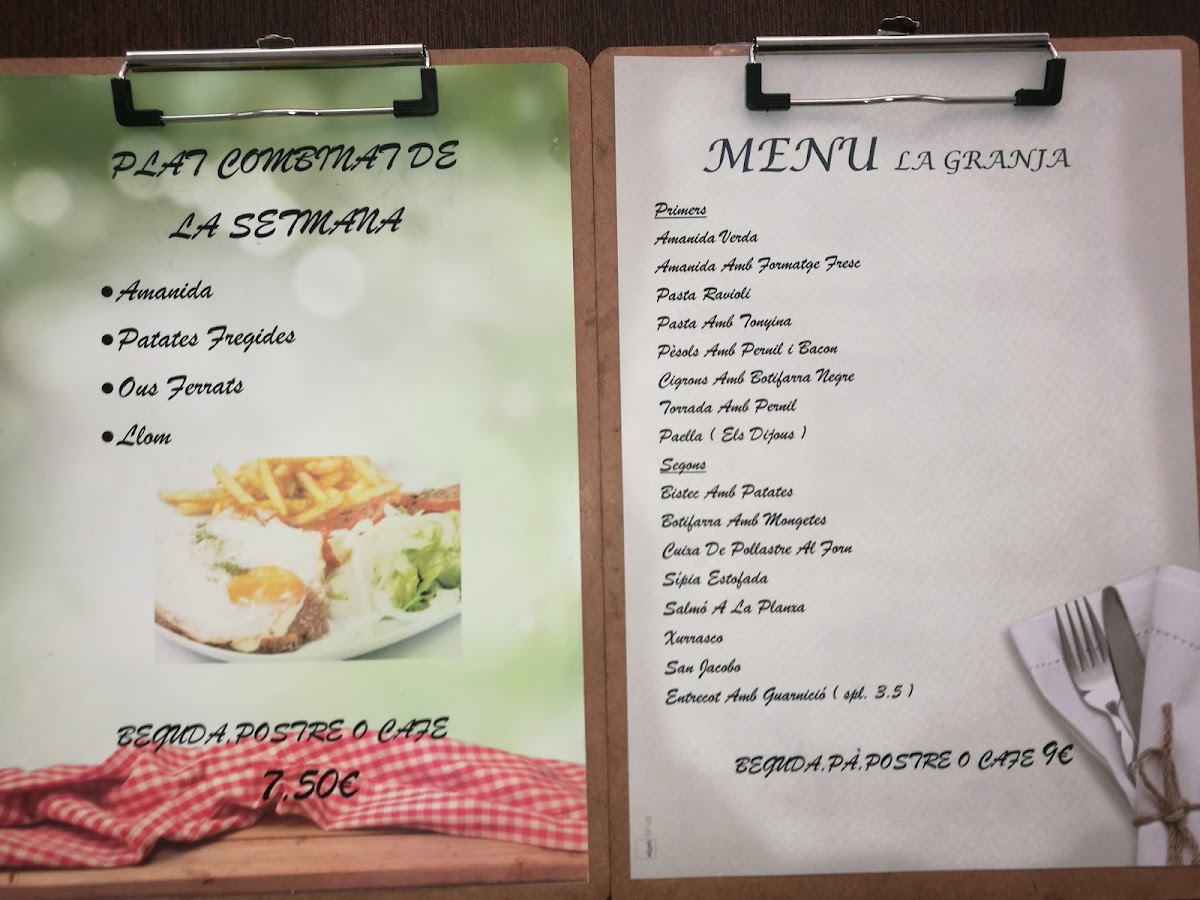 PLAT COMBINAT DE
LA SETMANA
• Amanida
• Patates Fregides
• Ous Ferrats
• Llom
BEGUDA,POSTRE O CAFE
7,50€
MENU LA GRANJA
Primers
Amanida Verda
Amanida Amb Formatge Fresc
Pasta Ravioli
Pasta Amb Tonyina
Pèsols Amb Pernil i Bacon
Cigrons Amb Botifarra Negre
Torrada Amb Pernil
Paella ( Els Dijous )
Segons
Bistec Amb Patates
Botifarra Amb Mongetes
Cuixa De Pollastre Al Forn
Sípia Estofada
Salmó A La Planxa
Xurrasco
San Jacobo
Entrecot Amb Guarnició ( spl. 3.5 )
BEGUDA,PÀ,POSTRE O CAFE 9€